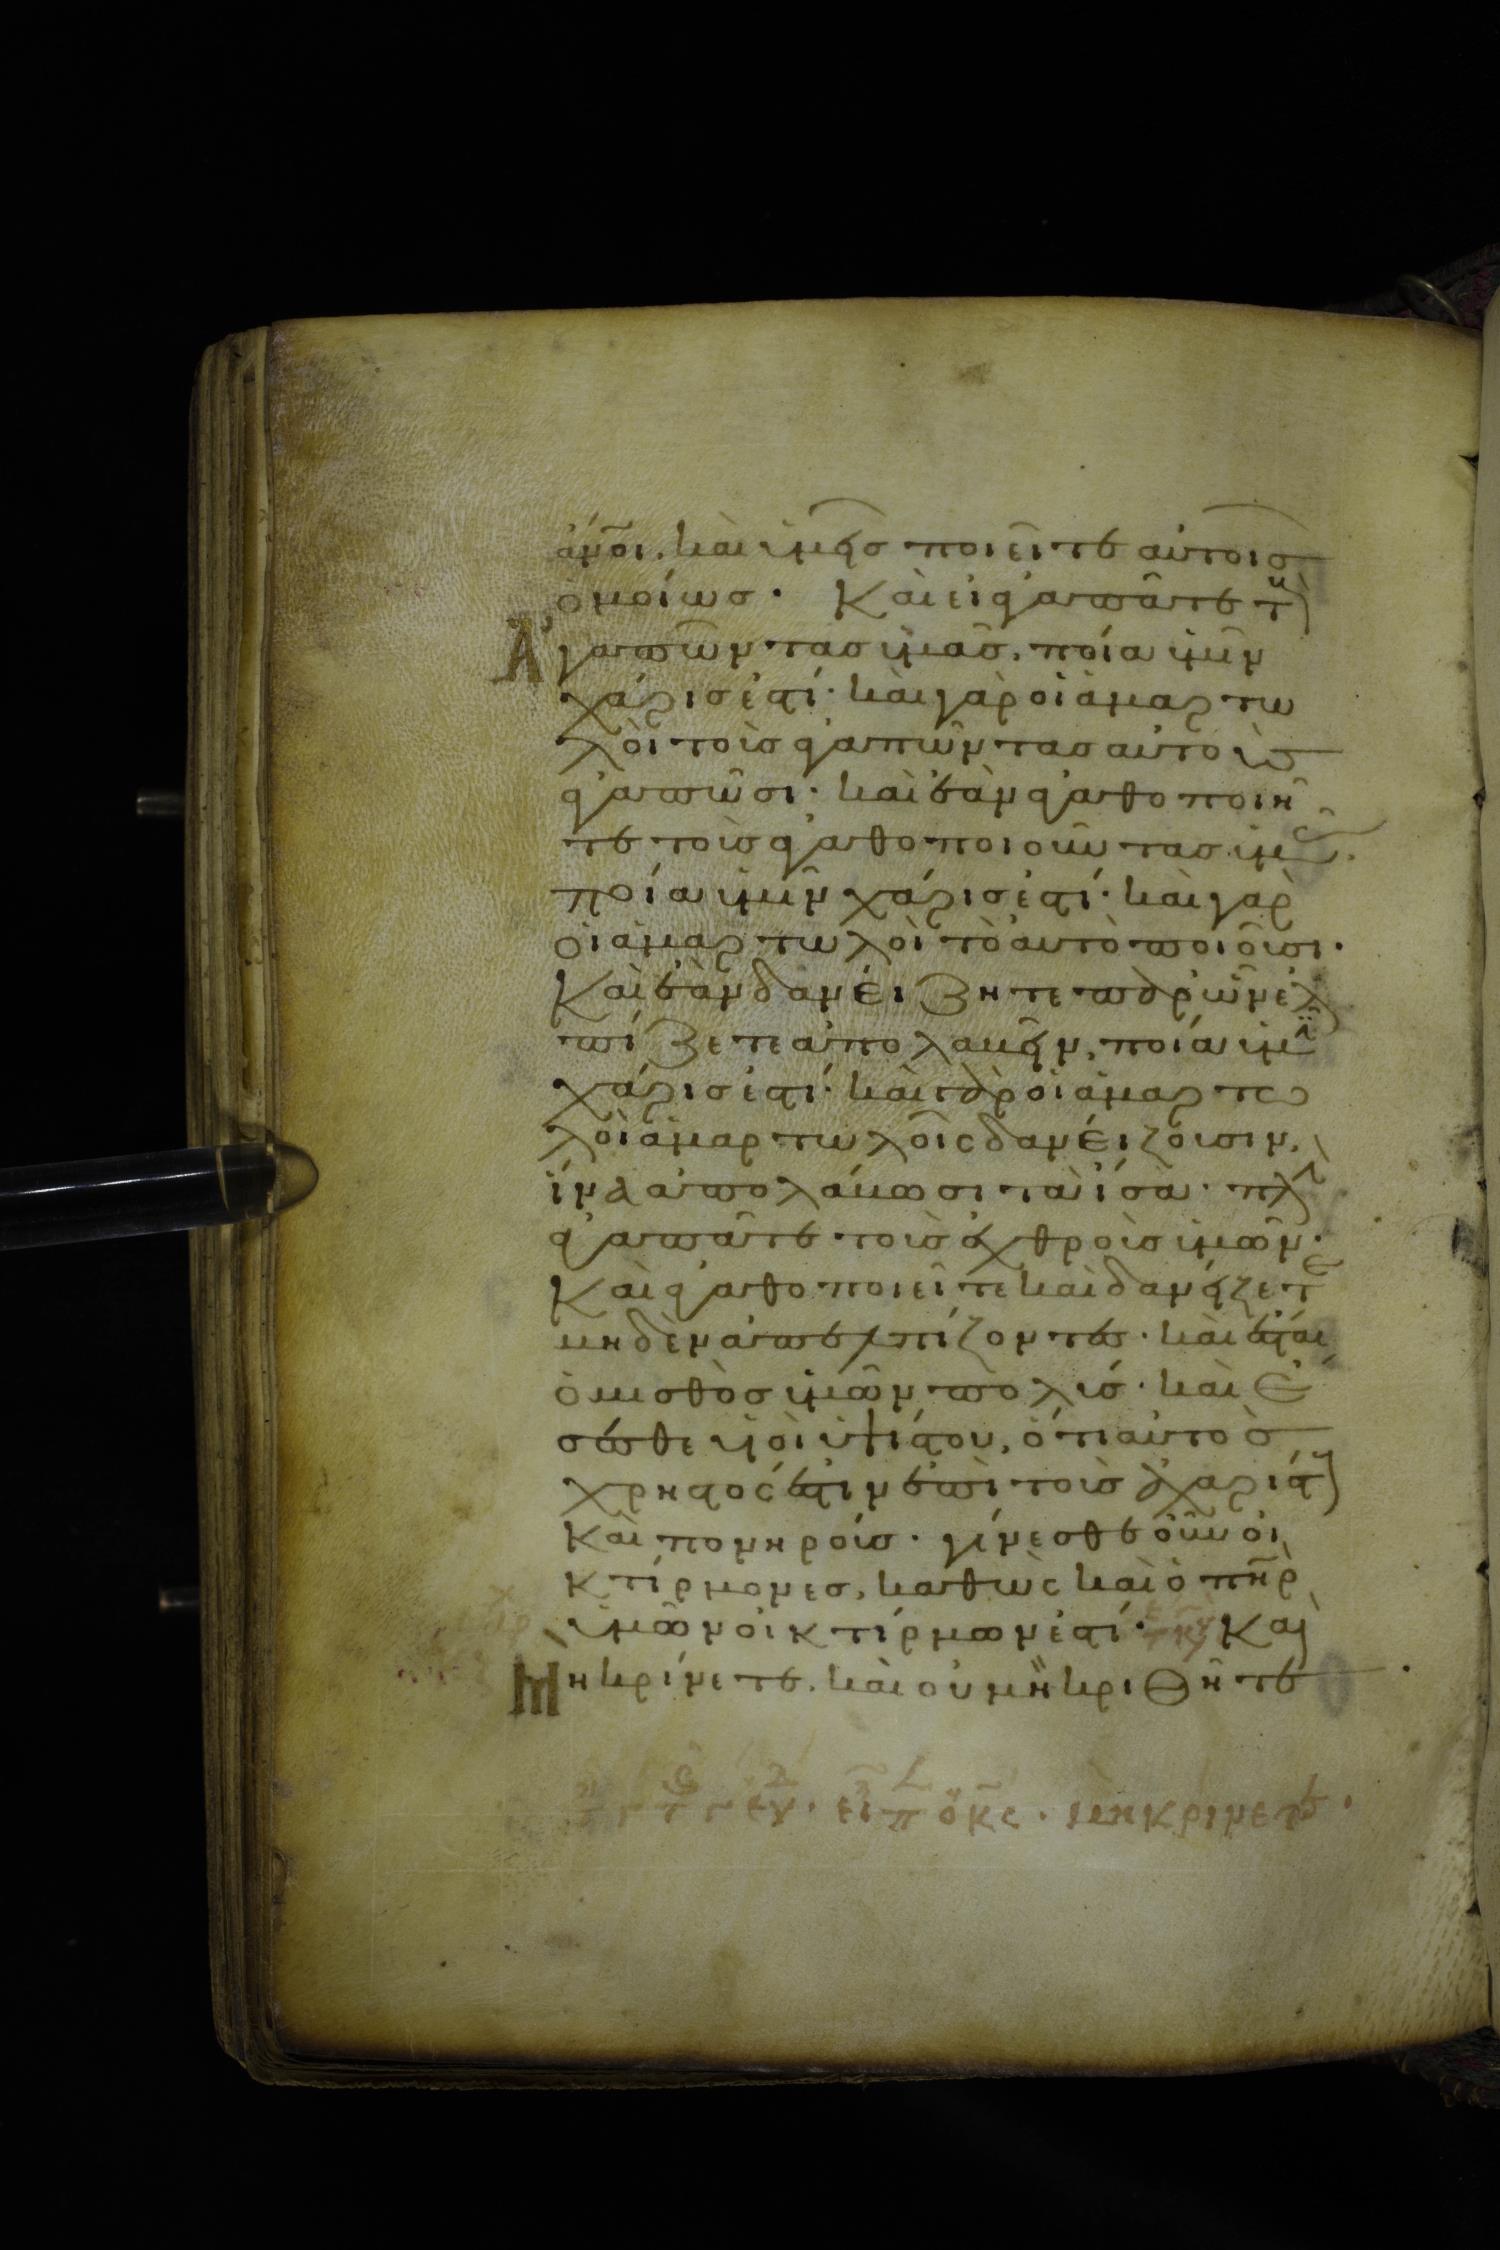 ἄνοι. καὶ ὑμεῖς ποιεῖτε αὐτοῖσ
ὁμοίωσ. Καὶ εἰ ἀγαπᾶτε τοὺς
Ἀγαπῶντασ ὑμᾶσ, ποία ὑμῖν
χάρισ ἐστί. καὶ γὰρ οἱ ἁμαρτω
λοὶ τοὺσ ἀγαπῶντασ αὐτοὺσ
ἀγαπῶσι. καὶ ἐὰν ἀγαθοποιῆ
τε τοὺσ ἀγαθοποιοῦντασ ὑμᾶς.
ποία ὑμῖν χάρισ ἐστί. καὶ γὰρ
οἱ ἁμαρτωλοὶ τὸ αὐτὸ ποιοῦσι.
Καὶ ἐὰν δανείζητε παρ' ὧν ἐλ
πίζετε ἀπολαβεῖν, ποία ὑμῖν
χάρισ ἐστί. καὶ γὰρ οἱ ἁμαρτω
λοὶ ἁμαρτωλοῖς δανείζουσιν,
ἵνα ἀπολάβωσι τὰ ἴσα. πλὴν
ἀγαπᾶτε τοὺσ ἐχθροὺσ ὑμῶν.
Καὶ ἀγαθοποιεῖτε καὶ δανείζετε
μηδὲν ἀπελπίζοντεσ. καὶ ἔσται
ὁ μισθὸσ ὑμῶν πολύσ. καὶ ἔ
σεσθε υἱοὶ ὑψίστου, ὅτι αὐτὸσ
χρηστός ἐστιν ἐπὶ τοὺσ ἀχαρίστους
καὶ πονηρούσ. γίνεσθε οὖν οἰ
κτίρμονεσ, καθὼς καὶ ὁ πηρ
ὑμῶν οἰκτίρμων ἐστί. Καὶ
Μὴ κρίνετε. καὶ οὐ μὴ κριθῆτε
εἶπ ὁ κς. μὴ κρίνετε.